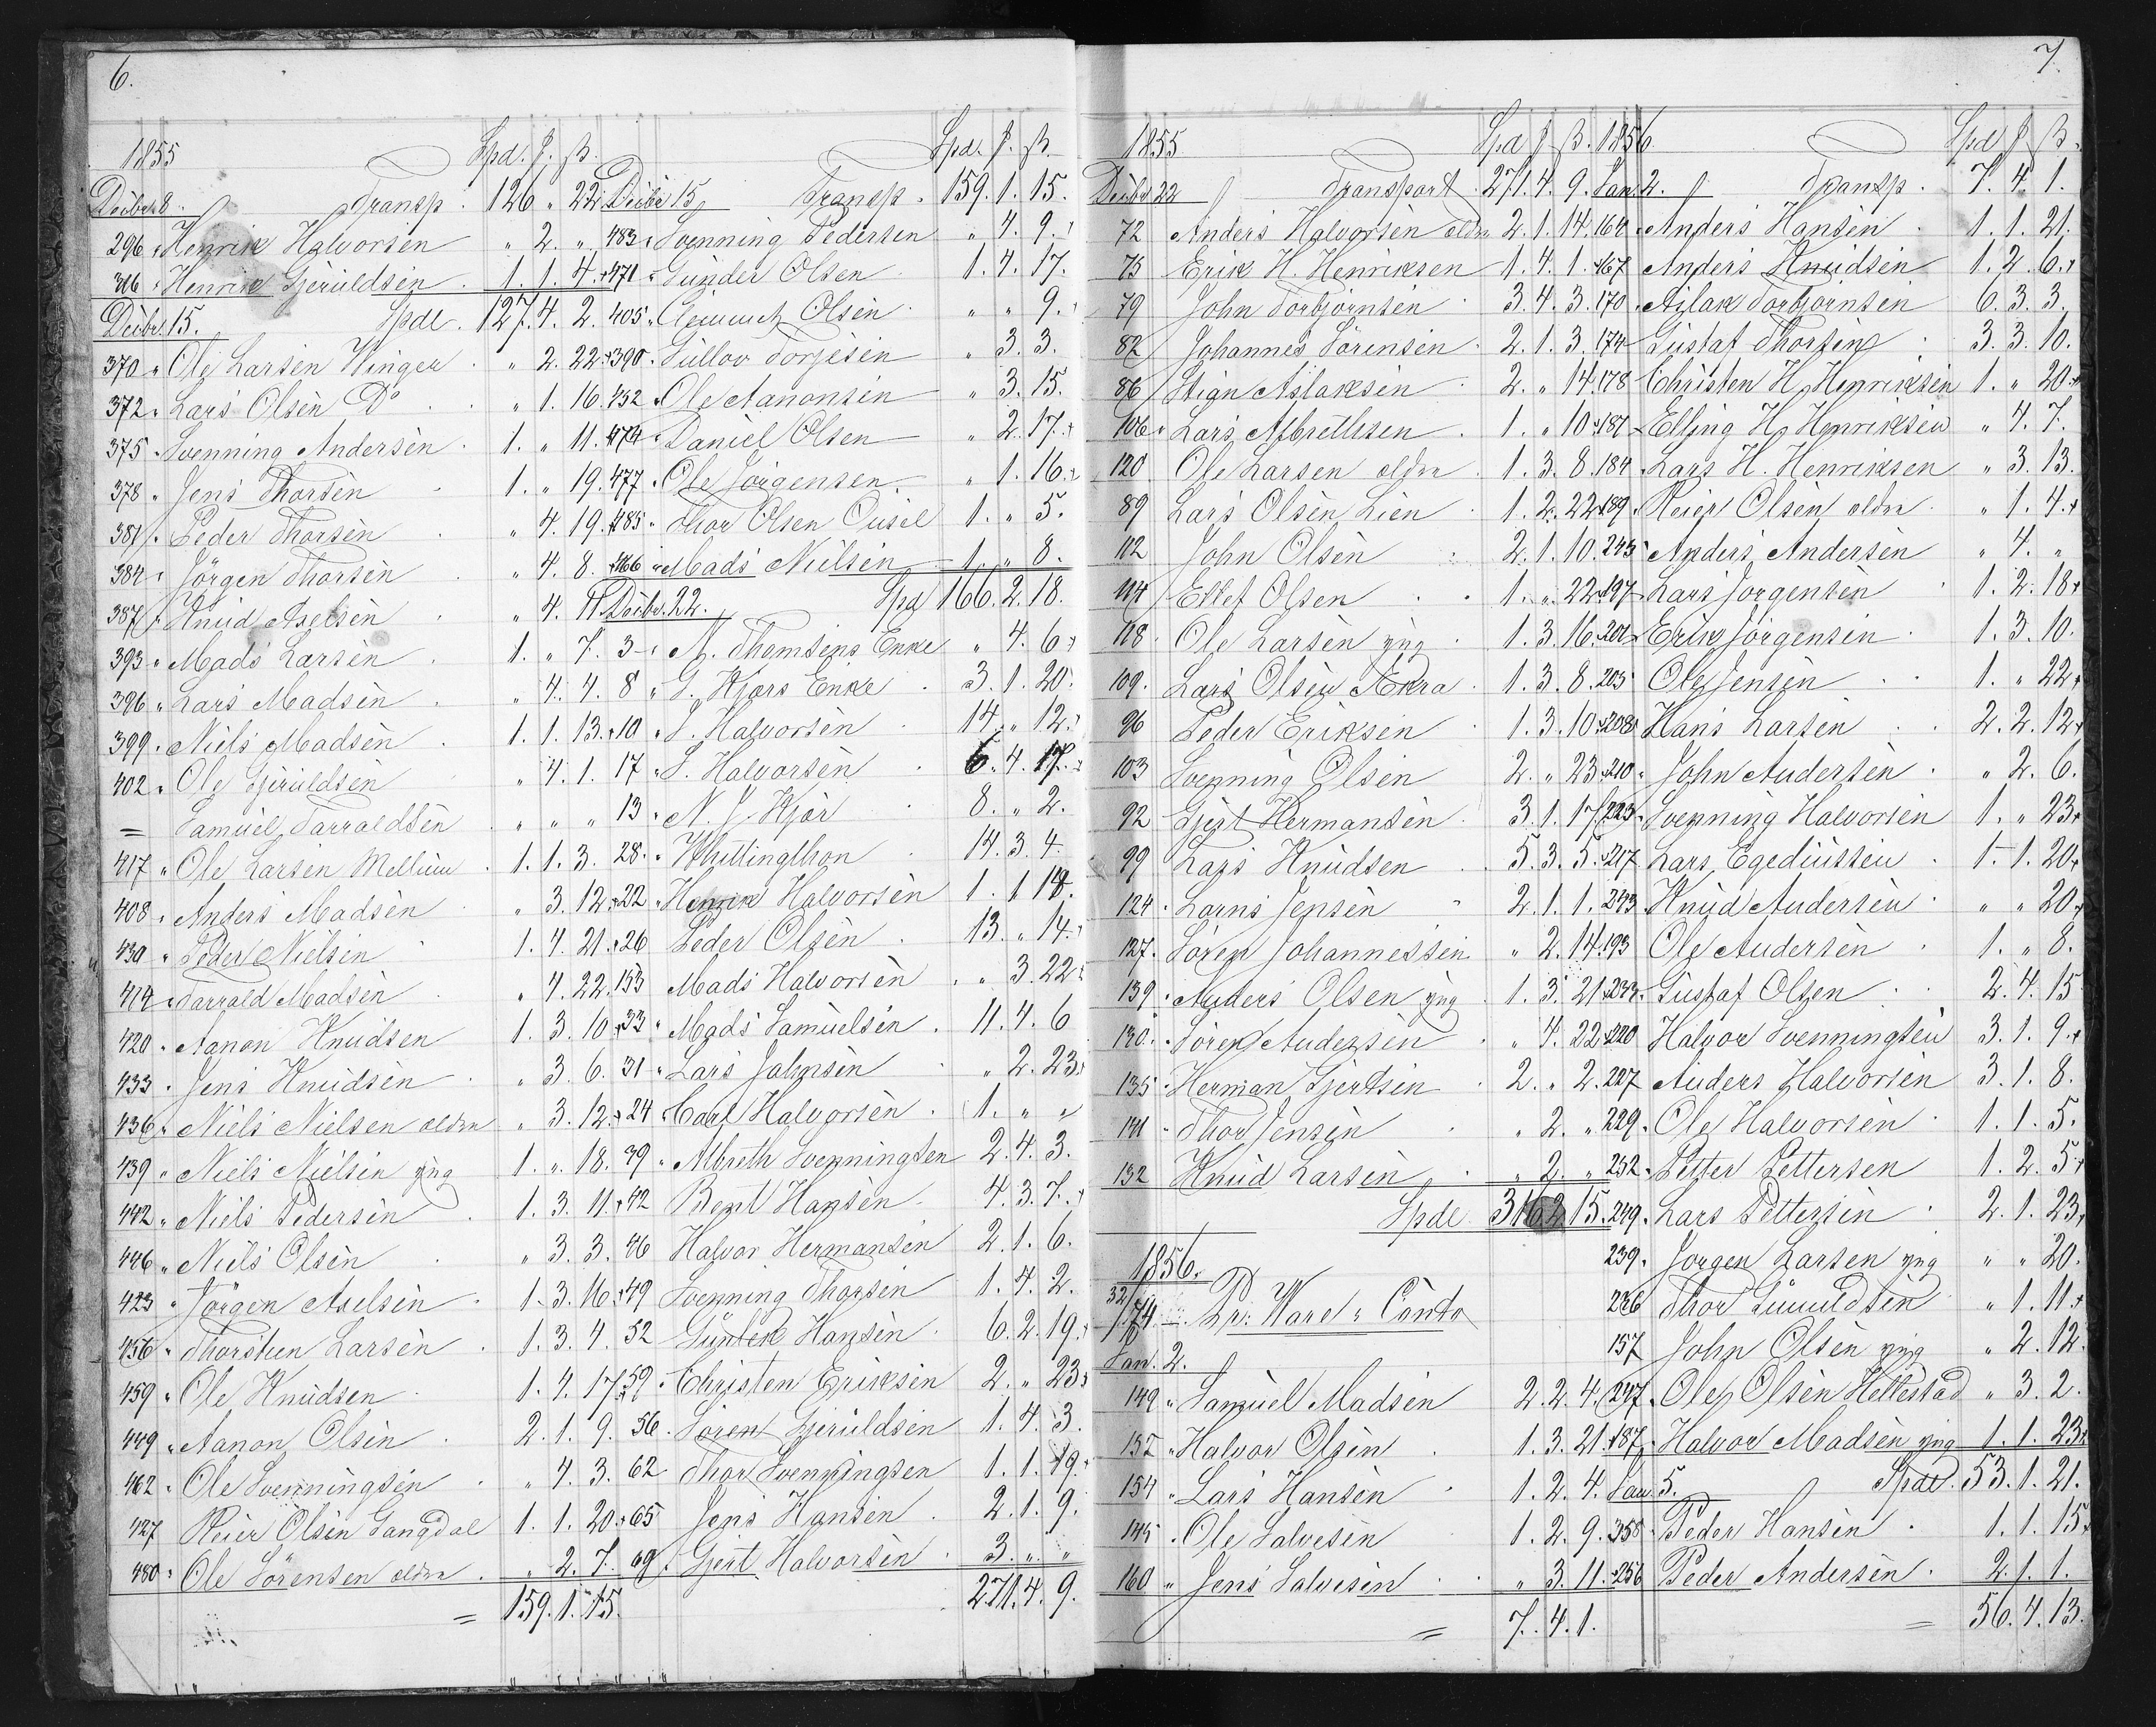 6.
1855 Spd. ƒ. β.
Decbr. 8. Transp. 126 " 22
296 " Henrik Halvorsen " 2. "
316 " Henrik Gjeruldsen 1. 1. 4.
Decbr. 15. Spdl. 127. 4. 2.
370 " Ole Larsen Winger " 2. 22
372 " Lars Olsen Do " 1. 16.
375 " Svenning Andersen 1. " 11.
378 " Jens Thorsen 1. " 19.
381 " Peder Thorsen " 4. 19.
384 " Jörgen Thorsen " 4. 8.
387 " Knud Axelsen " 4. 11
393 " Mads Larsen 1. " 7.
396 " Lars Madsen " 4. 4.
399 " Niels Madsen 1. 1. 13.
402 " Ole Gjeruldsen " 4. 1.
= Samuel Tarraldsen " " "
417 " Ole Larsen Mellum 1. 1. 3.
408 " Anders Madsen " 3. 12
430 " Peder Nielsen 1. 4. 21.
414 " Tarrald Madsen " 4. 22.
420 " Aanon Knudsen 1. 3. 10.
433 " Jens Knudsen " 3. 6.
436 " Niels Nielsen eldre " 3. 12.
439 " Niels Nielsen yng 1. " 18.
442 " Niels Pedersen 1. 3. 11.
446 " Niels Olsen " 3. 3.
423 " Jörgen Axelsen 1. 3. 16.
456 " Thorsten Larsen 1. 3. 4.
459 " Ole Knudsen 1. 4. 17.
449 " Aanon Olsen 2. 1. 9.
462 " Ole Svenningsen " 4. 3.
427 Reier Olsen Gangdal 1. 1. 20.
480 " Ole Sörensen eldre " 2. 7.
= 159. 1. 15.
Spdl. ƒ. β.
Decbr 15. Transp. 159. 1. 15.
483 " Svenning Pedersen " 4. 9.
471 " Gunder Olsen 1. 4. 17.
405 " Olsen " " 9.
390 " Tullov Torjesen " 3. 3.
452 " Ole Aanonsen " 3. 15.
474 " Daniel Olsen " 2. 17.
477 " Ole Jörgensen " 1. 16.
485 " Thor Olsen 1. " 5.
466 " Mads Nielsen 1. " 8.
Decbr. 22. Spd 166. 2. 18.
3 " A. Thomsens Enke " 4. 6
8 " G. Kjørs Enke 3. 1. 20.
10 " S. Halvorsen 14. " 12.
17 " S. Halvorsen 6. 4. 17.
13 " N. J. Kjör 8. " 2.
28 " Whittingthon 14. 3. 4.
22 " Henrik Halvorsen 1. 1 18.
26 Peder Olsen 13. " 14.
153 Mads Halvorsen " 3. 22
33 " Mads Samuelsen 11. 4. 6
31 " Lars Johnsen " 2. 23.
24 " Carl Halvorsen 1. " "
39 " Albreth Svenningsen 2. 4. 3.
42 Bent Hansen 4. 3. 7.
46 Halvor Hermansen 2. 1. 6.
49 Svenning Thorsen 1. 4. 2.
52 Gunlek Hansen 6. 2. 19.
59 " Christen Eriksen 2. " 23
56 " Sören Gjeruldsen 1. 4. 3.
62 Thor Svenningsen 1. 1. 19.
65 Jens Hansen 2. 1. 9.
69 " Gjert Halvorsen 3. " "
271. 4. 9.
7.
1855 Spd ƒ β.
Decbr 22 Transport 271. 4. 9.
72 Anders Halvorsen eldre 2. 1. 14.
75 Erik H. Henriksen 1. 4. 1.
79 John Torbjörnsen 3. 4. 3.
82 Johannes Sörensen 2. 1. 3.
86 Stian Aslaksen 2. " 14.
106 " Lars Albrethsen 1. " 10
120 Ole Larsen eldre 1. 3. 8.
89 Lars Olsen Lien 1. 2. 22
112 John Olsen 2. 1. 10.
114 Ellef Olsen 1. " 22
118 Ole Larsen yng 1. 3. 16.
109. Lars Olsen Akra 1. 3. 8.
96 Peder Eriksen 1. 3. 10
103 Svenning Olsen 2. " 23
92 Gjert Hermansen 3. 1. 17
99 Lars Knudsen 5. 3. 5.
124 " Jensen 2. 1. 1.
127. Sören Johannessen " 2. 14.
139 " Anders Olsen yng 1. 3. 21
130. " Sören Andersen " 4. 22
135 " Herman Gjertsen 2. " 2.
141 " Thor Jensen " 2. "
132 Knud Larsen " 2. "
Spdl. 316 2 15.
1856.
32/74 Pr: Ware " Conto
Jan. 2.
149 " Samuel Madsen 2. 2. 4.
152 " Halvor Olsen 1. 3. 21.
154 " Lars Hansen 1. 2. 4.
145 " Ole Salvesen 1. 2. 9.
160 " Jens Salvesen " 3. 11.
= 7. 4. 1.
1856. Spd ƒ β.
Jan. 2. Transp. 7. 4. 1.
164 " Anders Hansen 1. 1. 21.
167 Anders Knudsen 1. 2. 6.
170 " Aslak Torbjörnsen 6. 3. 3.
174 Gustaf Thorsen 3. 3. 10.
178 Christen H. Henriksen 1. " 20.
181 " Elling H. Henriksen " 4. 7.
184 " Lars H. Henriksen " 3. 13.
189 " Reier Olsen eldre " 1. 4.
245 Anders Andersen " 4. "
197 Lars Jorgensen 1. 2. 18
201 Erik Jörgensen 1. 3. 10.
205 Ole Jensen 1. " 22
208 Hans Larsen 2. 2. 12
210 " John Andersen " 2. 6.
223 " Svenning Halvorsen 1. " 23
217 Lars Egediussen 1. 1. 20
243 Knud Andersen " " 20.
193 Ole Andersen 1. " 8.
233. Gustaf Olsen 2. 4. 15
220 Halvor Svenningsen 3. 1. 9.
227 Anders Halvorsen 3. 1. 8.
229 " Ole Halvorsen 1. 1. 5.
252 " Petter Pettersen 1. 2. 5
249 " Lars Pettersen 2. 1. 23
239 " Jorgen Larsen yng " " 20.
236 Thor " 1. 11.
157 John Olsen yng " 2. 12.
247 " Ole Olsen Hellestad " 3. 2.
187 " Halvor Madsen yng 1. 1. 23
Jan 5. Spdl. 53. 1. 21.
358 " Peder Hansen 1. 1. 15
256 Peder Andersen 2. 1. 1.
= 56. 4. 13.